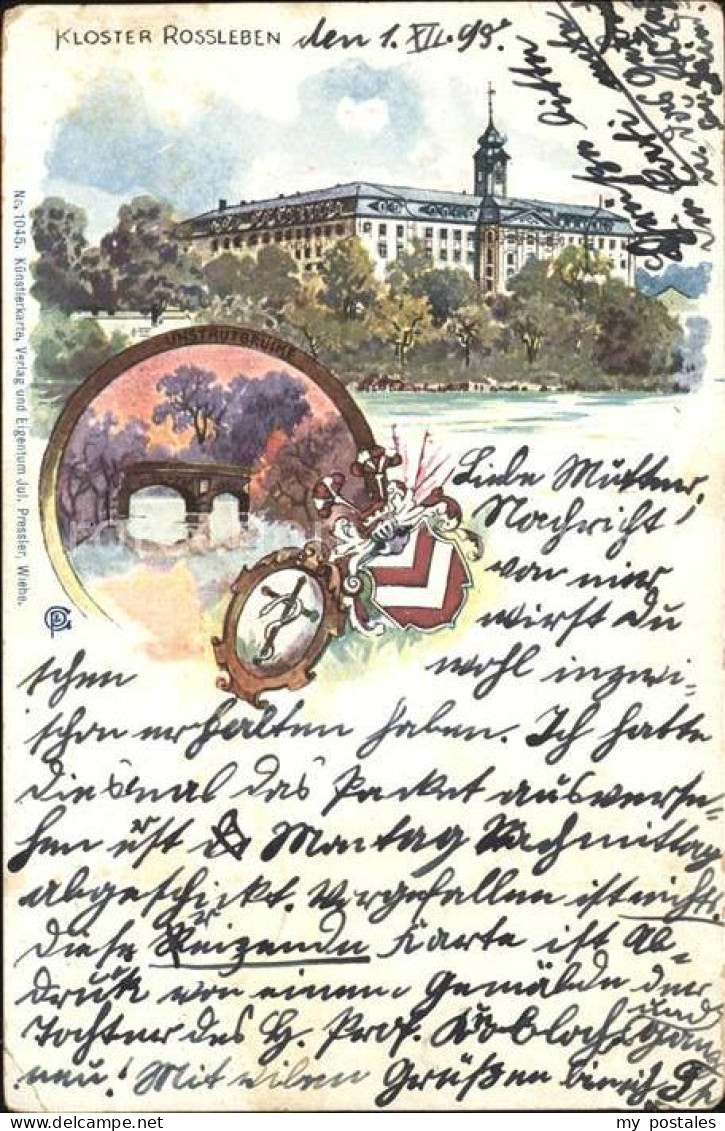 KLOSTER ROSSLEBEN den 1. XII. 98.
UNSTRUTBRÜCKE
No. 1045. Künstlerkarte, Verlag und Eigentum Jul. Pressler, Wiehe.
Liebe Mutter,
Nachricht
von mir
wirst Du
wohl inzwi-
schen
schon erhalten haben. Ich hatte
diesmal das Packet ausverse-
hen erst Montag Nachmittag
abgeschickt. Vorgefallen ist nichts.
Diese Reizende Karte ist Ab-
druck von einem Gemälde der
Tochter des H. Prof. und
neu! Mit vielen Grüßen bin ich
my postales